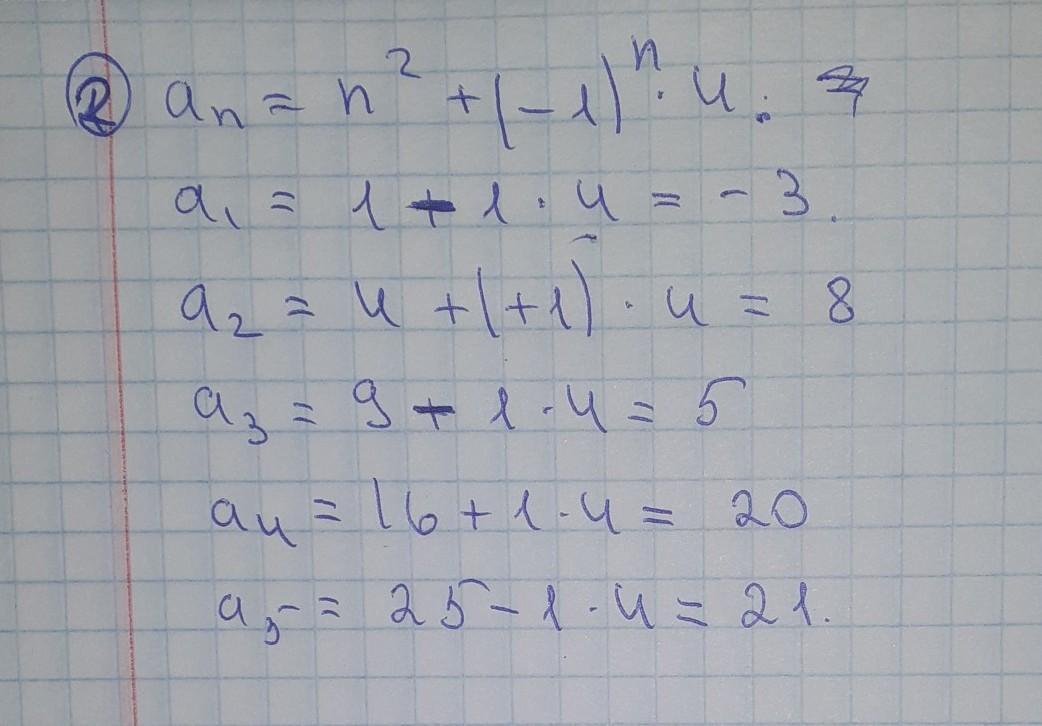 ② aₙ = n² + (-1)ⁿ · 4.
a₁ = 1 - 1 · 4 = - 3.
a₂ = 4 + (+1) · 4 = 8
a₃ = 9 - 1 · 4 = 5
a₄ = 16 + 1 · 4 = 20
a₅ = 25 - 1 · 4 = 21.